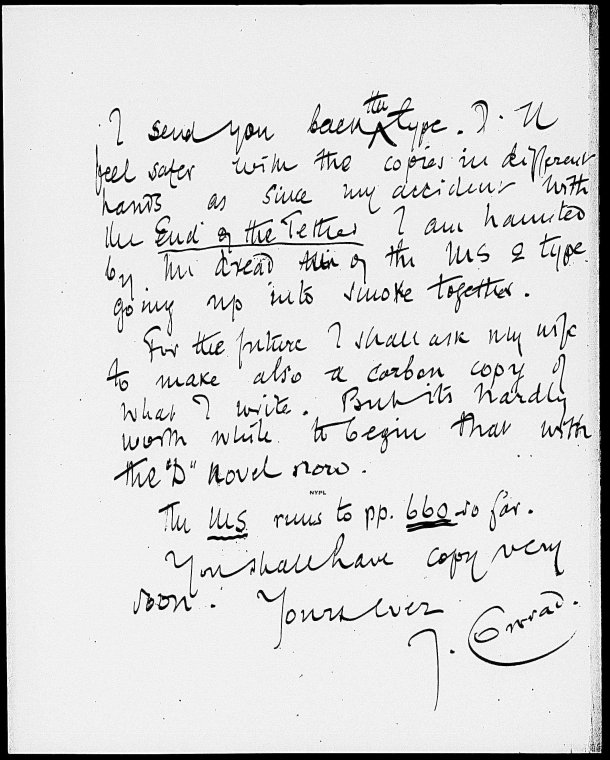 I send you back the type. I'll
feel safer with the copies in different
hands as since my accident with
the End of the Tether I am haunted
by the dread of the MS & type
going up into smoke together.
For the future I shall ask my wife
to make also a carbon copy of
what I write. But its hardly
worth while to begin that with
the "D" novel now.
NYPL
The MS runs to pp. 660 so far.
You shall have copy very
soon. Yours ever
J. Conrad.